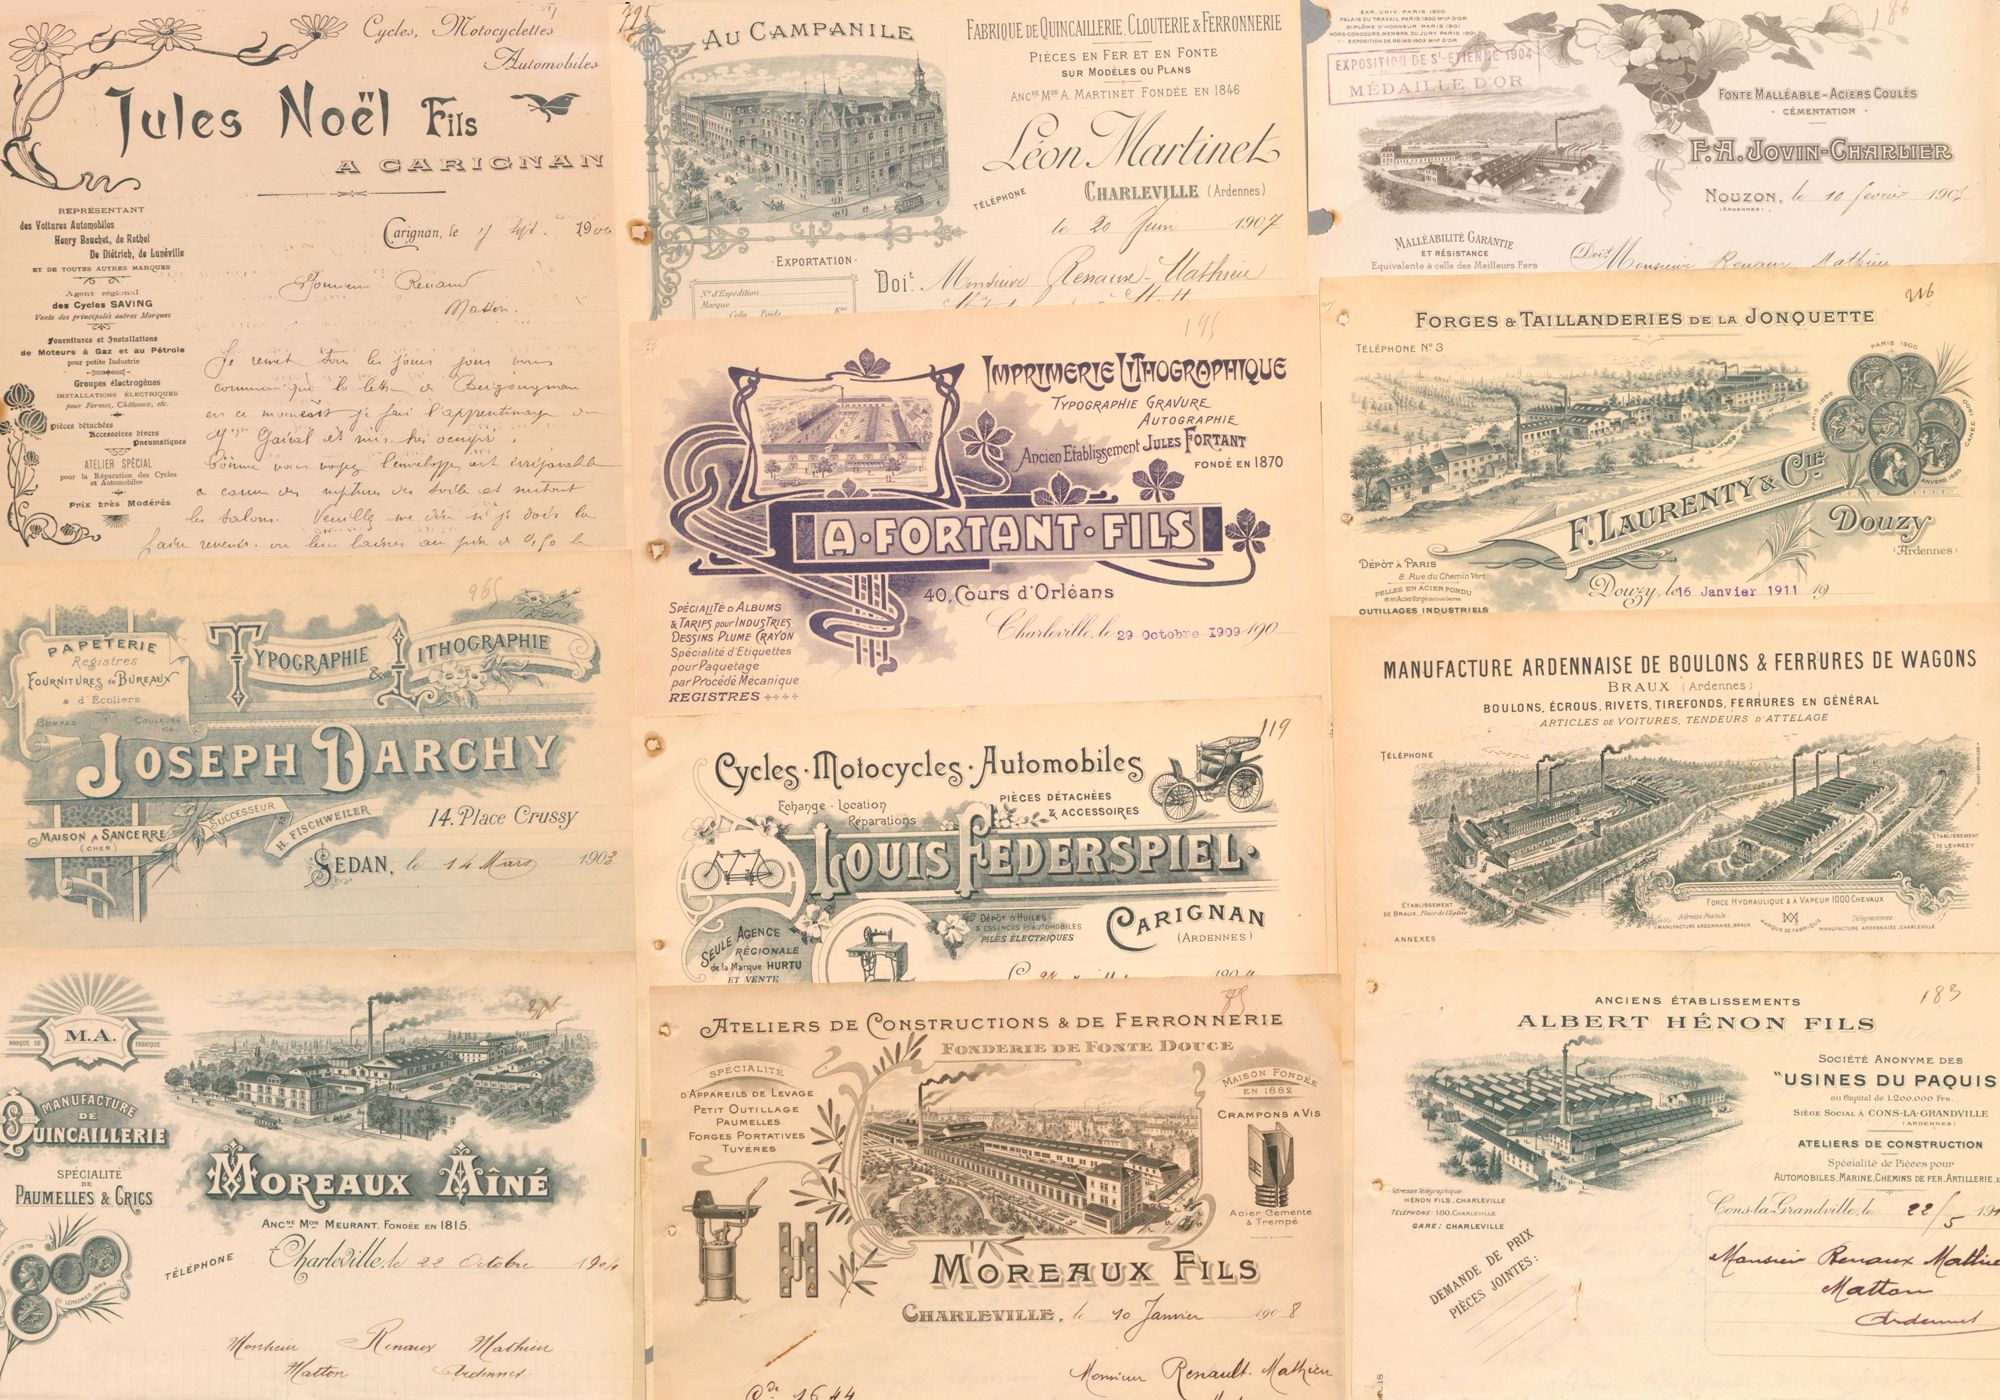 Cycles, Motocyclettes
Automobiles
Jules Noël Fils
A CARIGNAN
REPRÉSENTANT
des Voitures Automobiles
Henry Bauchet, de Rethel
De Diétrich, de Lunéville
ET DE TOUTES AUTRES MARQUES
Agent régional
des Cycles SAVING
Vente des principales autres Marques
Fournitures et Installations
de Moteurs à Gaz et au Pétrole
pour petite Industrie
Groupes électrogènes
INSTALLATIONS ÉLECTRIQUES
pour Fermes, Châteaux, etc.
Pièces détachées
Accessoires divers
Pneumatiques
ATELIER SPÉCIAL
pour la Réparation des Cycles
et Automobiles
Prix très Modérés
Carignan, le 190
Monsieur Renaud
Matton.
Je remet tous les jours pour vous
communiqué la lettre de
en ce moment je fais l'apprentissage du
et suis très occupé.
Comme vous voyez l'enveloppe est irréparable
a cause des ruptures des toile et surtout
les talons. Veuillez me dire si je dois la
faire revenir ou leur laisser au prix de 0,50 le
795
AU CAMPANILE
FABRIQUE DE QUINCAILLERIE, CLOUTERIE & FERRONNERIE
PIÈCES EN FER ET EN FONTE
SUR MODÈLES OU PLANS
ANCNE MON A. MARTINET FONDÉE EN 1846
Léon Martinet
TÉLÉPHONE
CHARLEVILLE (Ardennes)
le 20 Juin 1907
EXPORTATION
Doit Monsieur Renaux-Mathieu
N° d'Expédition
Marque
Colis Poids Kos
186
EXP. UNIV. PARIS 1900
PALAIS DU TRAVAIL PARIS 1900 MLE D'OR
DIPLÔME D'HONNEUR PARIS 1901
HORS-CONCOURS, MEMBRE DU JURY PARIS 1901
EXPOSITION DE REIMS 1903 MLE D'OR
EXPOSITION DE ST-ETIENNE 1904
MÉDAILLE D'OR
FONTE MALLÉABLE - ACIERS COULÉS
CÉMENTATION
F.A. JOVIN-CHARLIER
NOUZON, le 10 février 190
(ARDENNES)
MALLÉABILITÉ GARANTIE
ET RÉSISTANCE
Equivalente à celle des Meilleurs Fers
Doit Monsieur Renaux Mathieu
195
IMPRIMERIE LITHOGRAPHIQUE
TYPOGRAPHIE GRAVURE
AUTOGRAPHIE
Ancien Etablissement JULES FORTANT
FONDÉ EN 1870
A·FORTANT·FILS
40, Cours d'Orléans
Charleville, le 29 Octobre 1909 190
SPÉCIALITÉ D'ALBUMS
& TARIFS pour INDUSTRIES
DESSINS PLUME CRAYON
Spécialité d'Etiquettes
pour Paquetage
par Procédé Mécanique
REGISTRES ++++
216
FORGES & TAILLANDERIES DE LA JONQUETTE
TÉLÉPHONE No 3
PARIS 1900
PARIS 1889
ANVERS 1885
F. LAURENTY & CIE
Douzy
(Ardennes)
DÉPÔT A PARIS
8. Rue du Chemin Vert
PELLES EN ACIER FONDU
OUTILLAGES INDUSTRIELS
Douzy, le 16 Janvier 1911 19
965
PAPETERIE
Registres
FOURNITURES de BUREAUX
& d'Ecoliers
COMPAS COULEURS
etc.
TYPOGRAPHIE & LITHOGRAPHIE
JOSEPH DARCHY
SUCCESSEUR
H. FISCHWEILER
14. Place Crussy
MAISON A SANCERRE
(CHER)
SEDAN, le 14 Mars 1903
119
Cycles · Motocycles · Automobiles
Echange - Location
Réparations
PIÈCES DÉTACHÉES
& ACCESSOIRES
LOUIS FEDERSPIEL
CARIGNAN
(ARDENNES)
DÉPÔT D'HUILES
& ESSENCES P. AUTOMOBILES
PILES ÉLECTRIQUES
SEULE AGENCE
RÉGIONALE
de la Marque HURTU
ET VENTE
MANUFACTURE ARDENNAISE DE BOULONS & FERRURES DE WAGONS
BRAUX (Ardennes)
BOULONS, ÉCROUS, RIVETS, TIREFONDS, FERRURES EN GÉNÉRAL
ARTICLES DE VOITURES, TENDEURS D'ATTELAGE
TÉLÉPHONE
ETABLISSEMENT
DE LEVREZY
ETABLISSEMENT
DE BRAUX, Place de l'Eglise
FORCE HYDRAULIQUE & À VAPEUR 1000 CHEVAUX
Adresse Postale
MANUFACTURE ARDENNAISE, BRAUX
MARQUE DE FABRIQUE
Télégrammes
MANUFACTURE ARDENNAISE, CHARLEVILLE
ANNEXES
M.A.
MARQUE DE FABRIQUE
MANUFACTURE
DE
QUINCAILLERIE
SPÉCIALITÉ
DE
PAUMELLES & CRICS
MOREAUX AÎNÉ
ANCNE MON MEURANT, FONDÉE EN 1815.
PARIS 1878
LONDRES 1862
TÉLÉPHONE
Charleville, le 22 Octobre 1904
Monsieur Renaux Mathieu
Matton Ardennes
ATELIERS DE CONSTRUCTIONS & DE FERRONNERIE
FONDERIE DE FONTE DOUCE
SPÉCIALITÉ
D'APPAREILS DE LEVAGE
PETIT OUTILLAGE
PAUMELLES
FORGES PORTATIVES
TUYÈRES
MAISON FONDÉE
EN 1882
CRAMPONS A VIS
Acier Cémenté
& Trempé
MOREAUX FILS
CHARLEVILLE, le 10 Janvier 1908
Monsieur Renault-Mathieu
Cde 1644
183
ANCIENS ÉTABLISSEMENTS
ALBERT HÉNON FILS
SOCIÉTÉ ANONYME DES
"USINES DU PAQUIS
au Capital de 1.200.000 Frs.
SIÈGE SOCIAL À CONS-LA-GRANDVILLE
(ARDENNES)
ATELIERS DE CONSTRUCTION
Spécialité de Pièces pour
AUTOMOBILES, MARINE, CHEMINS DE FER, ARTILLERIE,
Adresse Télégraphique:
HÉNON FILS, CHARLEVILLE
TÉLÉPHONE: 180, CHARLEVILLE
GARE: CHARLEVILLE
Cons-la-Grandville, le 22/5 191
DEMANDE DE PRIX
PIÈCES JOINTES:
Monsieur Renaux Mathie
Matton
Ardennes